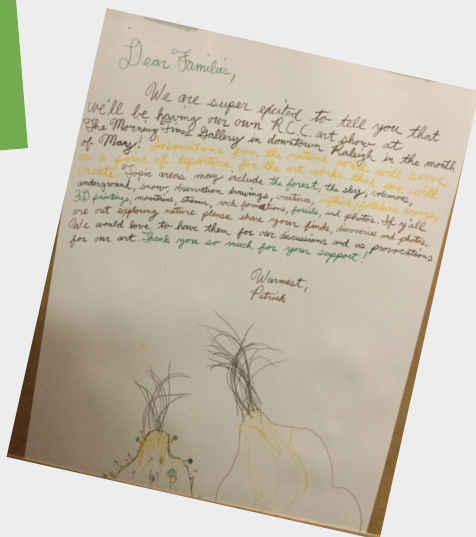 Dear Families,
We are super excited to tell you that
we'll be having our own R.C.C. art show at
The Morning Times Gallery in downtown Raleigh in the month
of May! Inspirations from the natural world will serve
as a point of departure for the art works that we will
create. Topic areas may include the forest, the sky, volcanoes,
underground, snow, observation drawings, creatures, mythical/folklore beings,
3D paintings, mountains, streams, rock formations, fossils, and photos. If y'all
are out exploring nature please share your finds, discoveries and photos.
We would love to have them for our discussions and as provocations
for our art. Thank you so much for your support!
Warmest,
Patrick